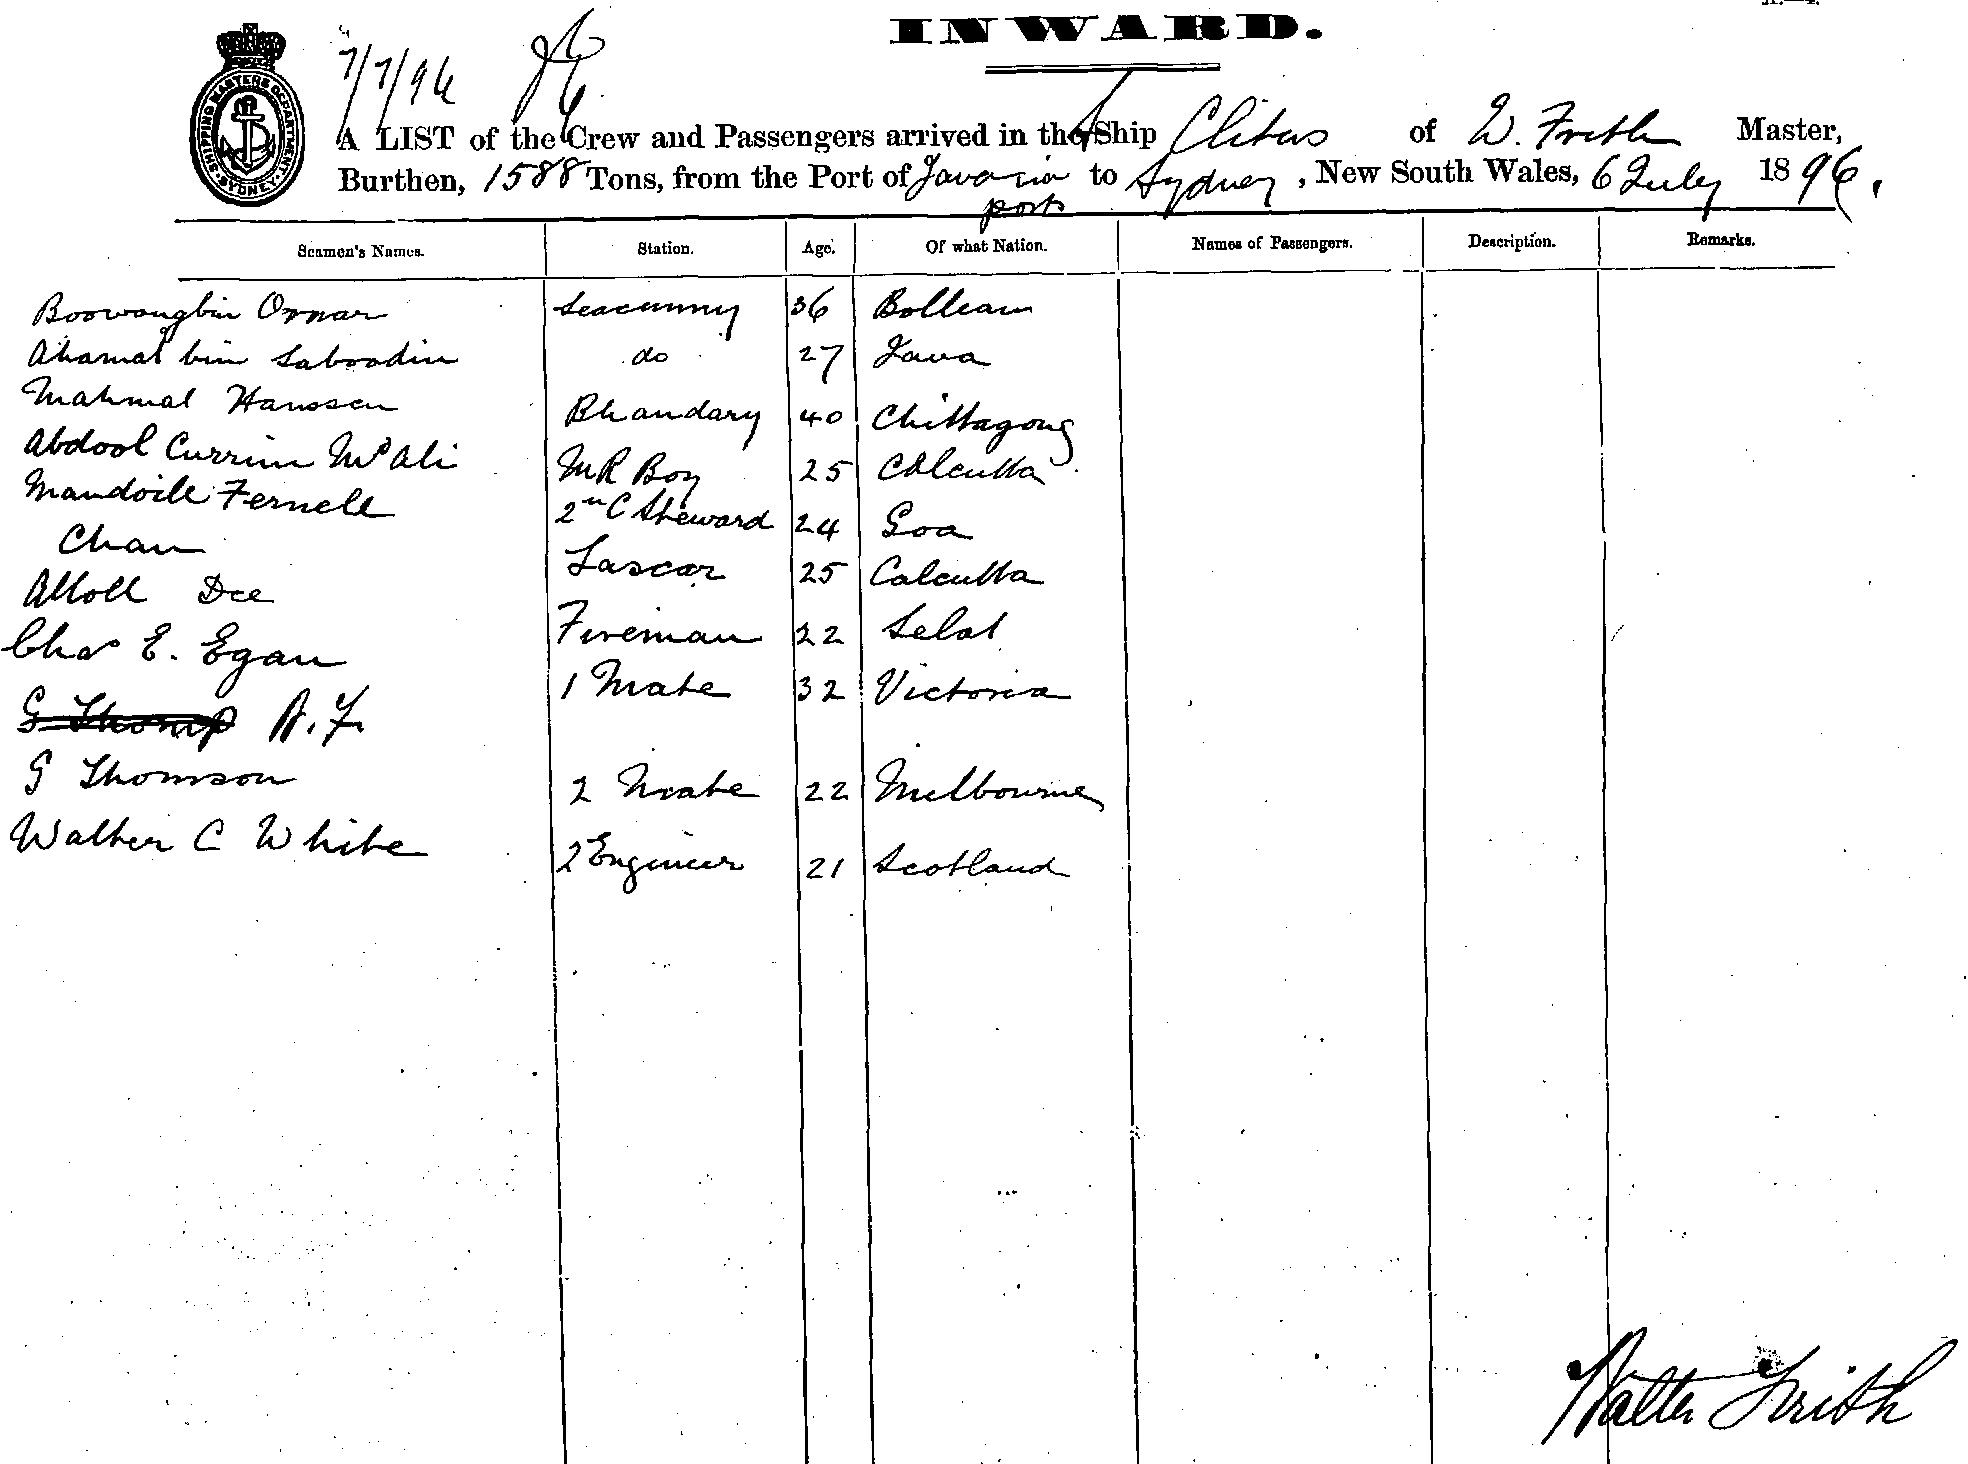 INWARD.
7/7/96
SHIPPING MASTERS DEPARTMENT SYDNEY
A LIST of the Crew and Passengers arrived in the Ship Clitus of W. Frith Master,
Burthen, 1588 Tons, from the Port of Java via ports to Sydney, New South Wales, 6 July 1896.
Seamen's Names. Station. Age. Of what Nation. Names of Passengers. Description. Remarks.
Boowangbin Omar Seacunny 36
Ahamat bin Saboodin do 27 Java
Mahmat Hanssen Bhandary 40 Chittagong
Abdool Currim Md Ali MR Boy 25 Calcutta
Fernell 2nd C Steward 24 Goa
Chan Lascar 25 Calcutta
Dee Fireman 22
Chas E. Egan 1 Mate 32 Victoria
G Thomp
G Thomson 2 Mate 22 Melbourne
Walter C White 2 Engineer 21 Scotland
Walter Frith